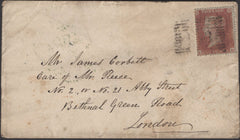 Mr. James Corbett
Care of Mr. Reece
No. 2, or No. 21 Abby Street
Bethnal Green Road
London